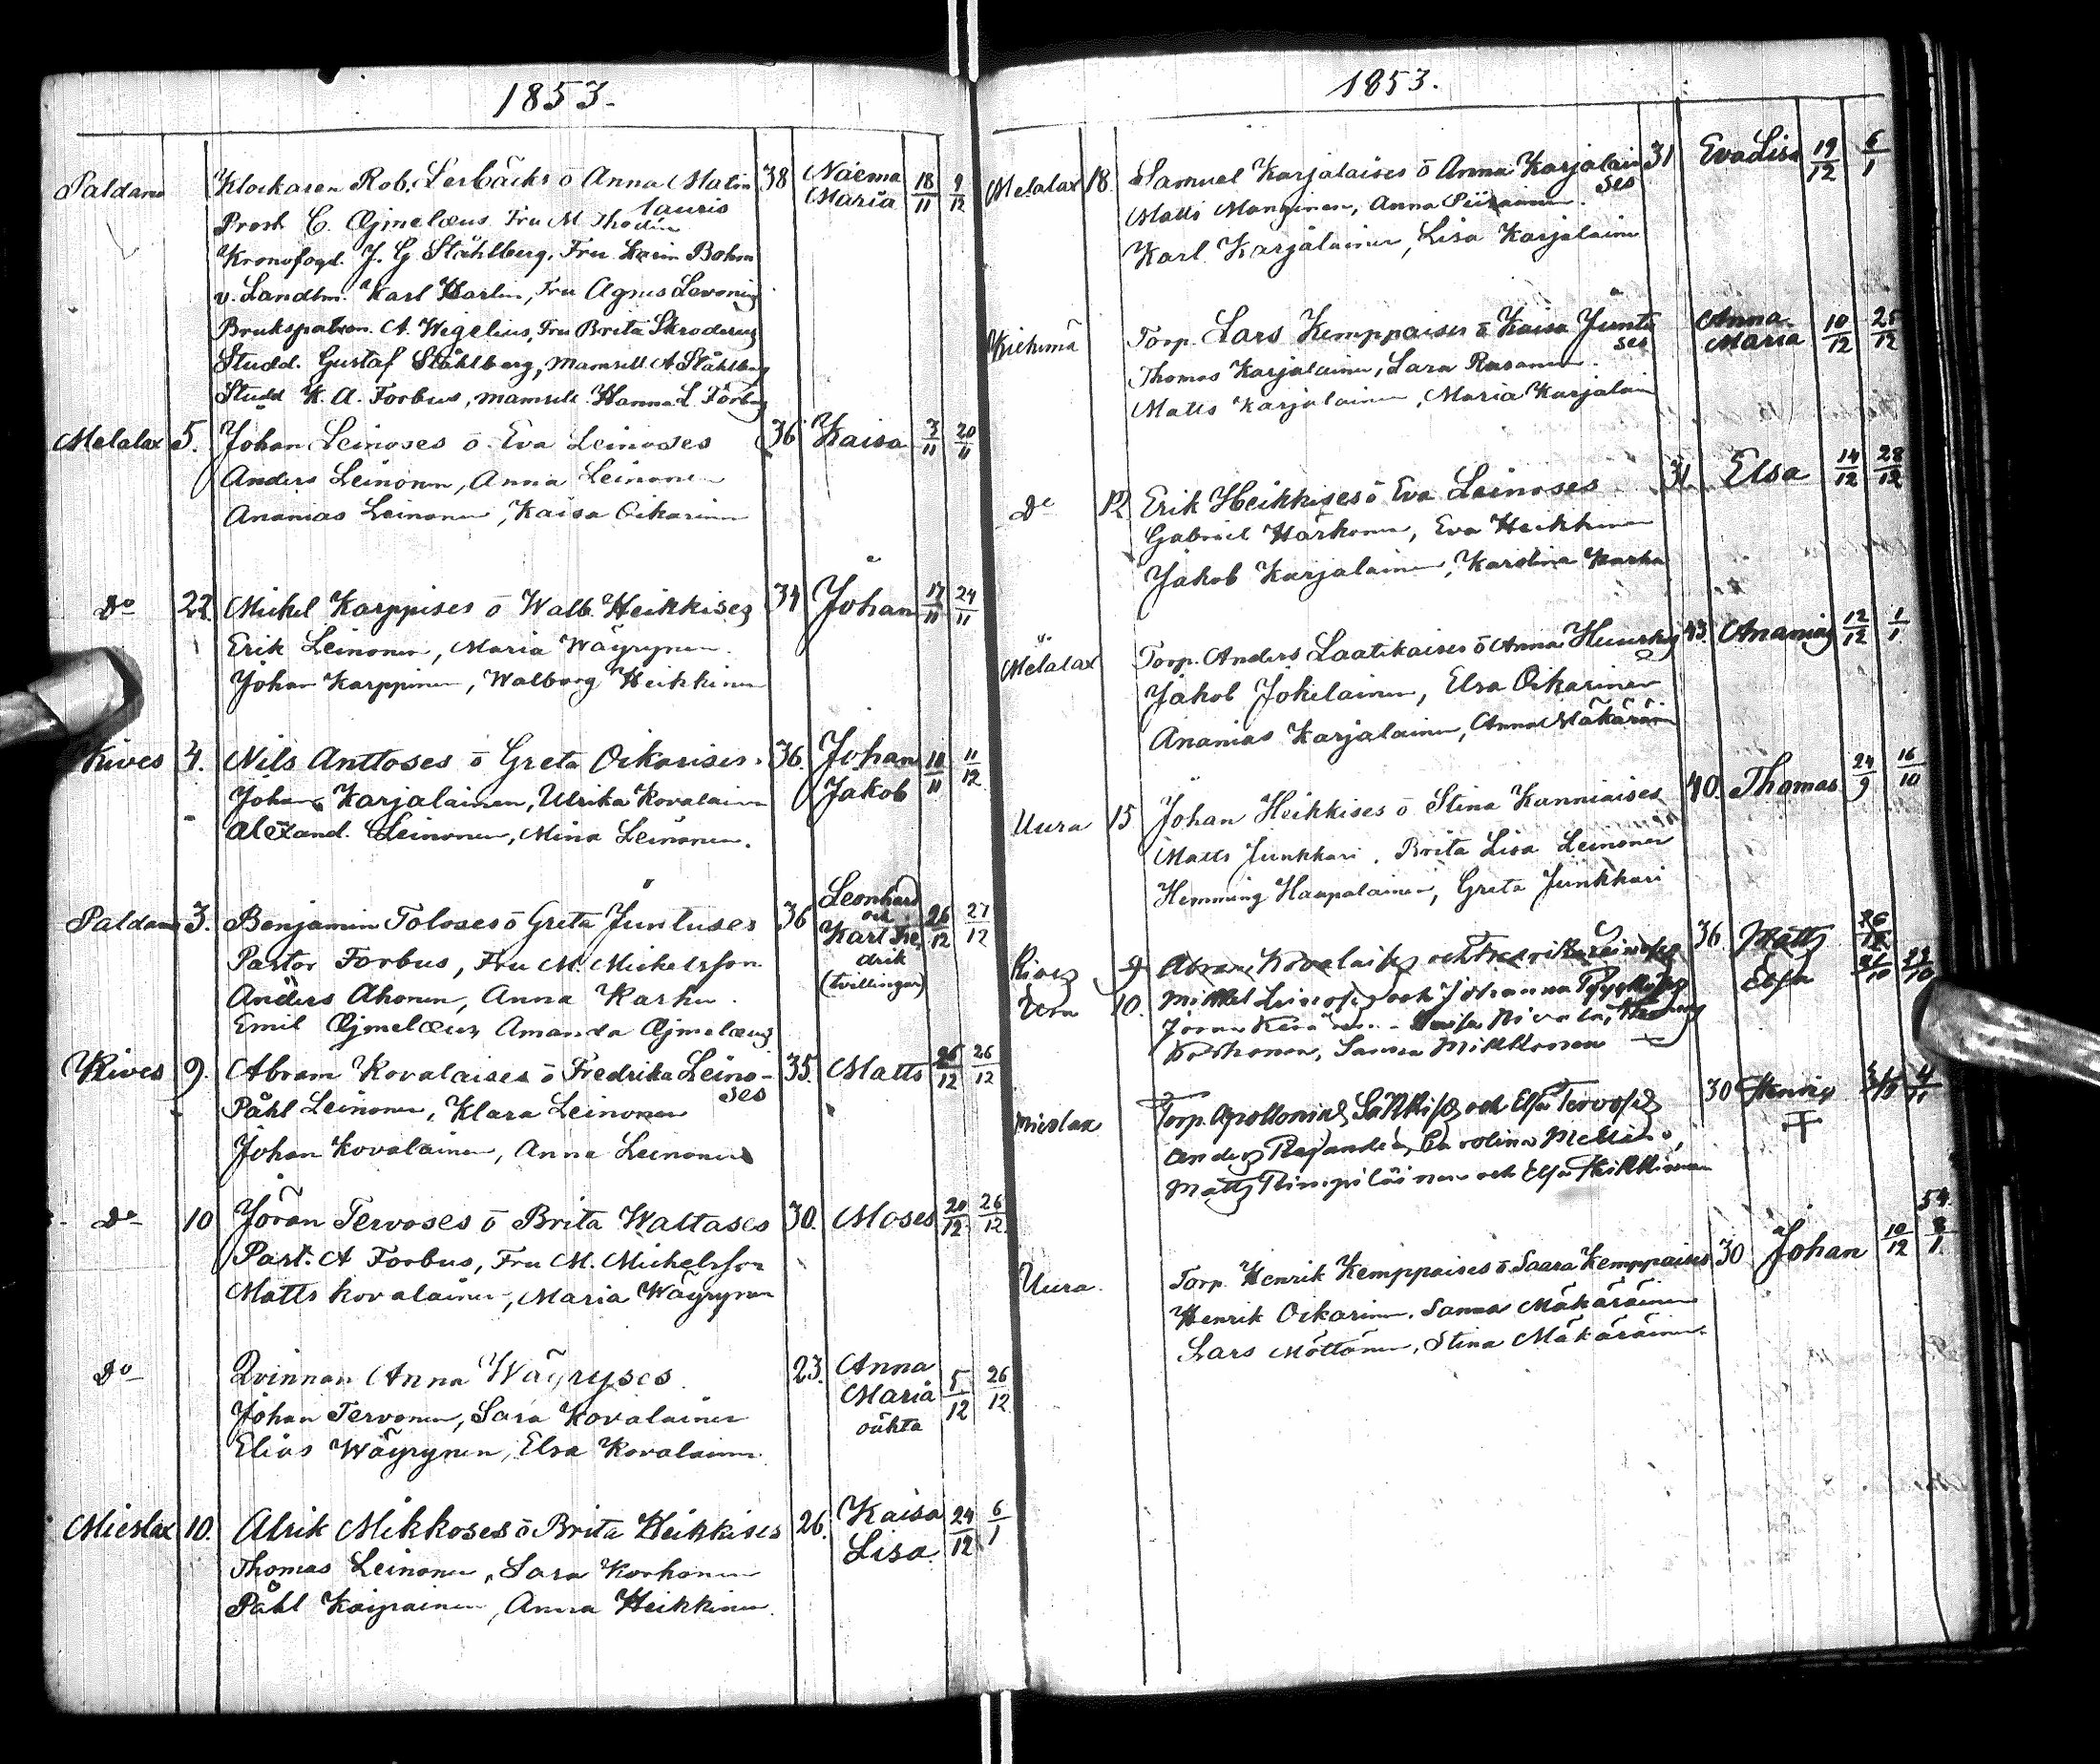 1853.
Paldamo Klockaren Rob. Lerbäcks o Anna Malin 38 Naema Maria 18/11 9/12
lauris
Prost C. Ajmelæus Fru M Thodin
Kronofogd. J. G Ståhlberg, Fru Karin Bohm
v. Landtm. Karl Harlin, Fru Agnes
Brukspatron. A. Wigelius, Fru Brita Skroderus
Studd. Gustaf Ståhlberg, Mamsell A. Ståhlberg
Studd K. A. Forbus, mamsell Hanna L. Forbus
Melalax 5. Johan Leinoses o Eva Leinoses 36 Kaisa 3/11 20/11
Anders Leinonen, Anna Leinonen
Ananias Leinonen, Kaisa Oikarinen
Do 22. Mickel Karppises o Walb. Heikkises 34 Johan 17/11 24/11
Erik Leinonen, Maria Wäyrynen.
Johan Karppinen, Walborg Heikkinen
Kives 4. Nils Anttoses o Greta Oikarises. 36. Johan Jakob 18/11 11/12
Johan Karjalainen, Ulrika Kovalainen
Alexand. Leinonen, Mina Leinonen.
Paldamo 3. Benjamin Toloses o Greta Juntuses 36 Leonhard och Karl Fredrik (tvillingar) 26/12 27/12
Pastor Forbus, Fru M. Michelsson
Anders Ahonen, Anna Karhu.
Emil Ajmelæus, Amanda Ajmelæus
Kives 9. Abram Kovalaises o Fredrika Leinoses 35. Matts 26/12 26/12
Påhl Leinonen, Klara Leinonen
Johan Kovalainen, Anna Leinonen
Do 10 Jöran Tervoses o Brita Waltases 30. Moses 20/12 26/12
Past. A Forbus, Fru M. Michelsson
Matts Kovalainen, Maria Wäyrynen
Do Qvinnan Anna Wäyryses 23. Anna Maria oäkta 5/12 26/12
Johan Tervonen, Sara Kovalainen
Elias Wäyrynen, Elsa Kovalainen.
Mieslax 10. Alrik Mikkoses o Brita Heikkises 26. Kaisa Lisa 24/12 6/1
Thomas Leinonen, Sara Korhonen
Påhl Kaipainen, Anna Heikkinen.
1853.
Melalax 18. Samuel Karjalaises o Anna Karjalaises 31 Eva Lisa 19/12 6/1
Matts Manninen, Anna Piirainen.
Karl Karjalainen, Lisa Karjalainen
Kiehimä Torp. Lars Kemppaises o Kaisa Juntuses Anna Maria 10/12 25/12
Thomas Karjalainen, Sara Rusanen.
Matts Karjalainen, Maria Karjalain
Do 12 Erik Heikkises o Eva Leinoses 31. Elsa 14/12 28/12
Gabriel Härkönen, Eva Heikkinen
Jakob Karjalainen, Karolina Karhu
Melalax Torp. Anders Laatikaises o Anna 43. Ananias 12/12 1/1
Jakob Jokelainen, Elsa Oikarinen
Ananias Karjalainen, Anna Mäkäräin
Uura 15 Johan Heikkises o Stina Kanniaises 40. Thomas 24/9 16/10
Matts Junkkari, Brita Lisa Leinonen
Hemming Haapalainen, Greta Junkkari
Kives 9 Abram Kovalaises och Fredrika Leinoses 36. Matts 26/12
Uura 10. Mikkel Leinoses och Johanna Elsa 21/10 23/10
Jöran
Korhonen, Sanna Mikkonen
Mieslax Torp. Apollonius och Elsa Tervoses 30 4/11
Anders Carolina
Matts Rimpiläinen och Elsa Heikkinen
54.
Uura. Torp. Henrik Kemppaises o Saara Kemppaises 30 Johan 10/12 8/1
Henrik Oikarinen, Sanna Mäkäräinen
Lars Möttönen, Stina Mäkäräinen.